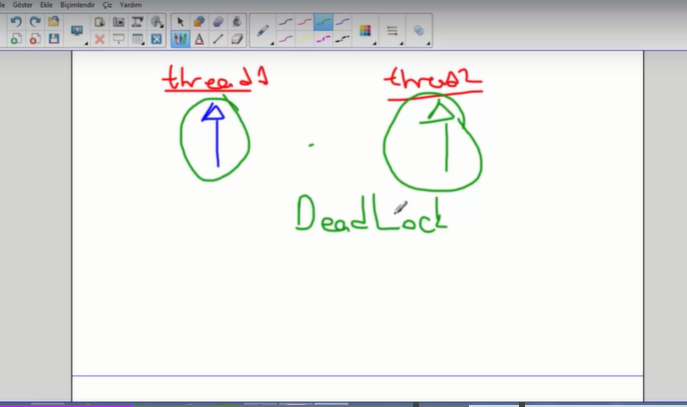 Göster Ekle Biçimlendir Çiz Yardım
thread1 thread2
DeadLock